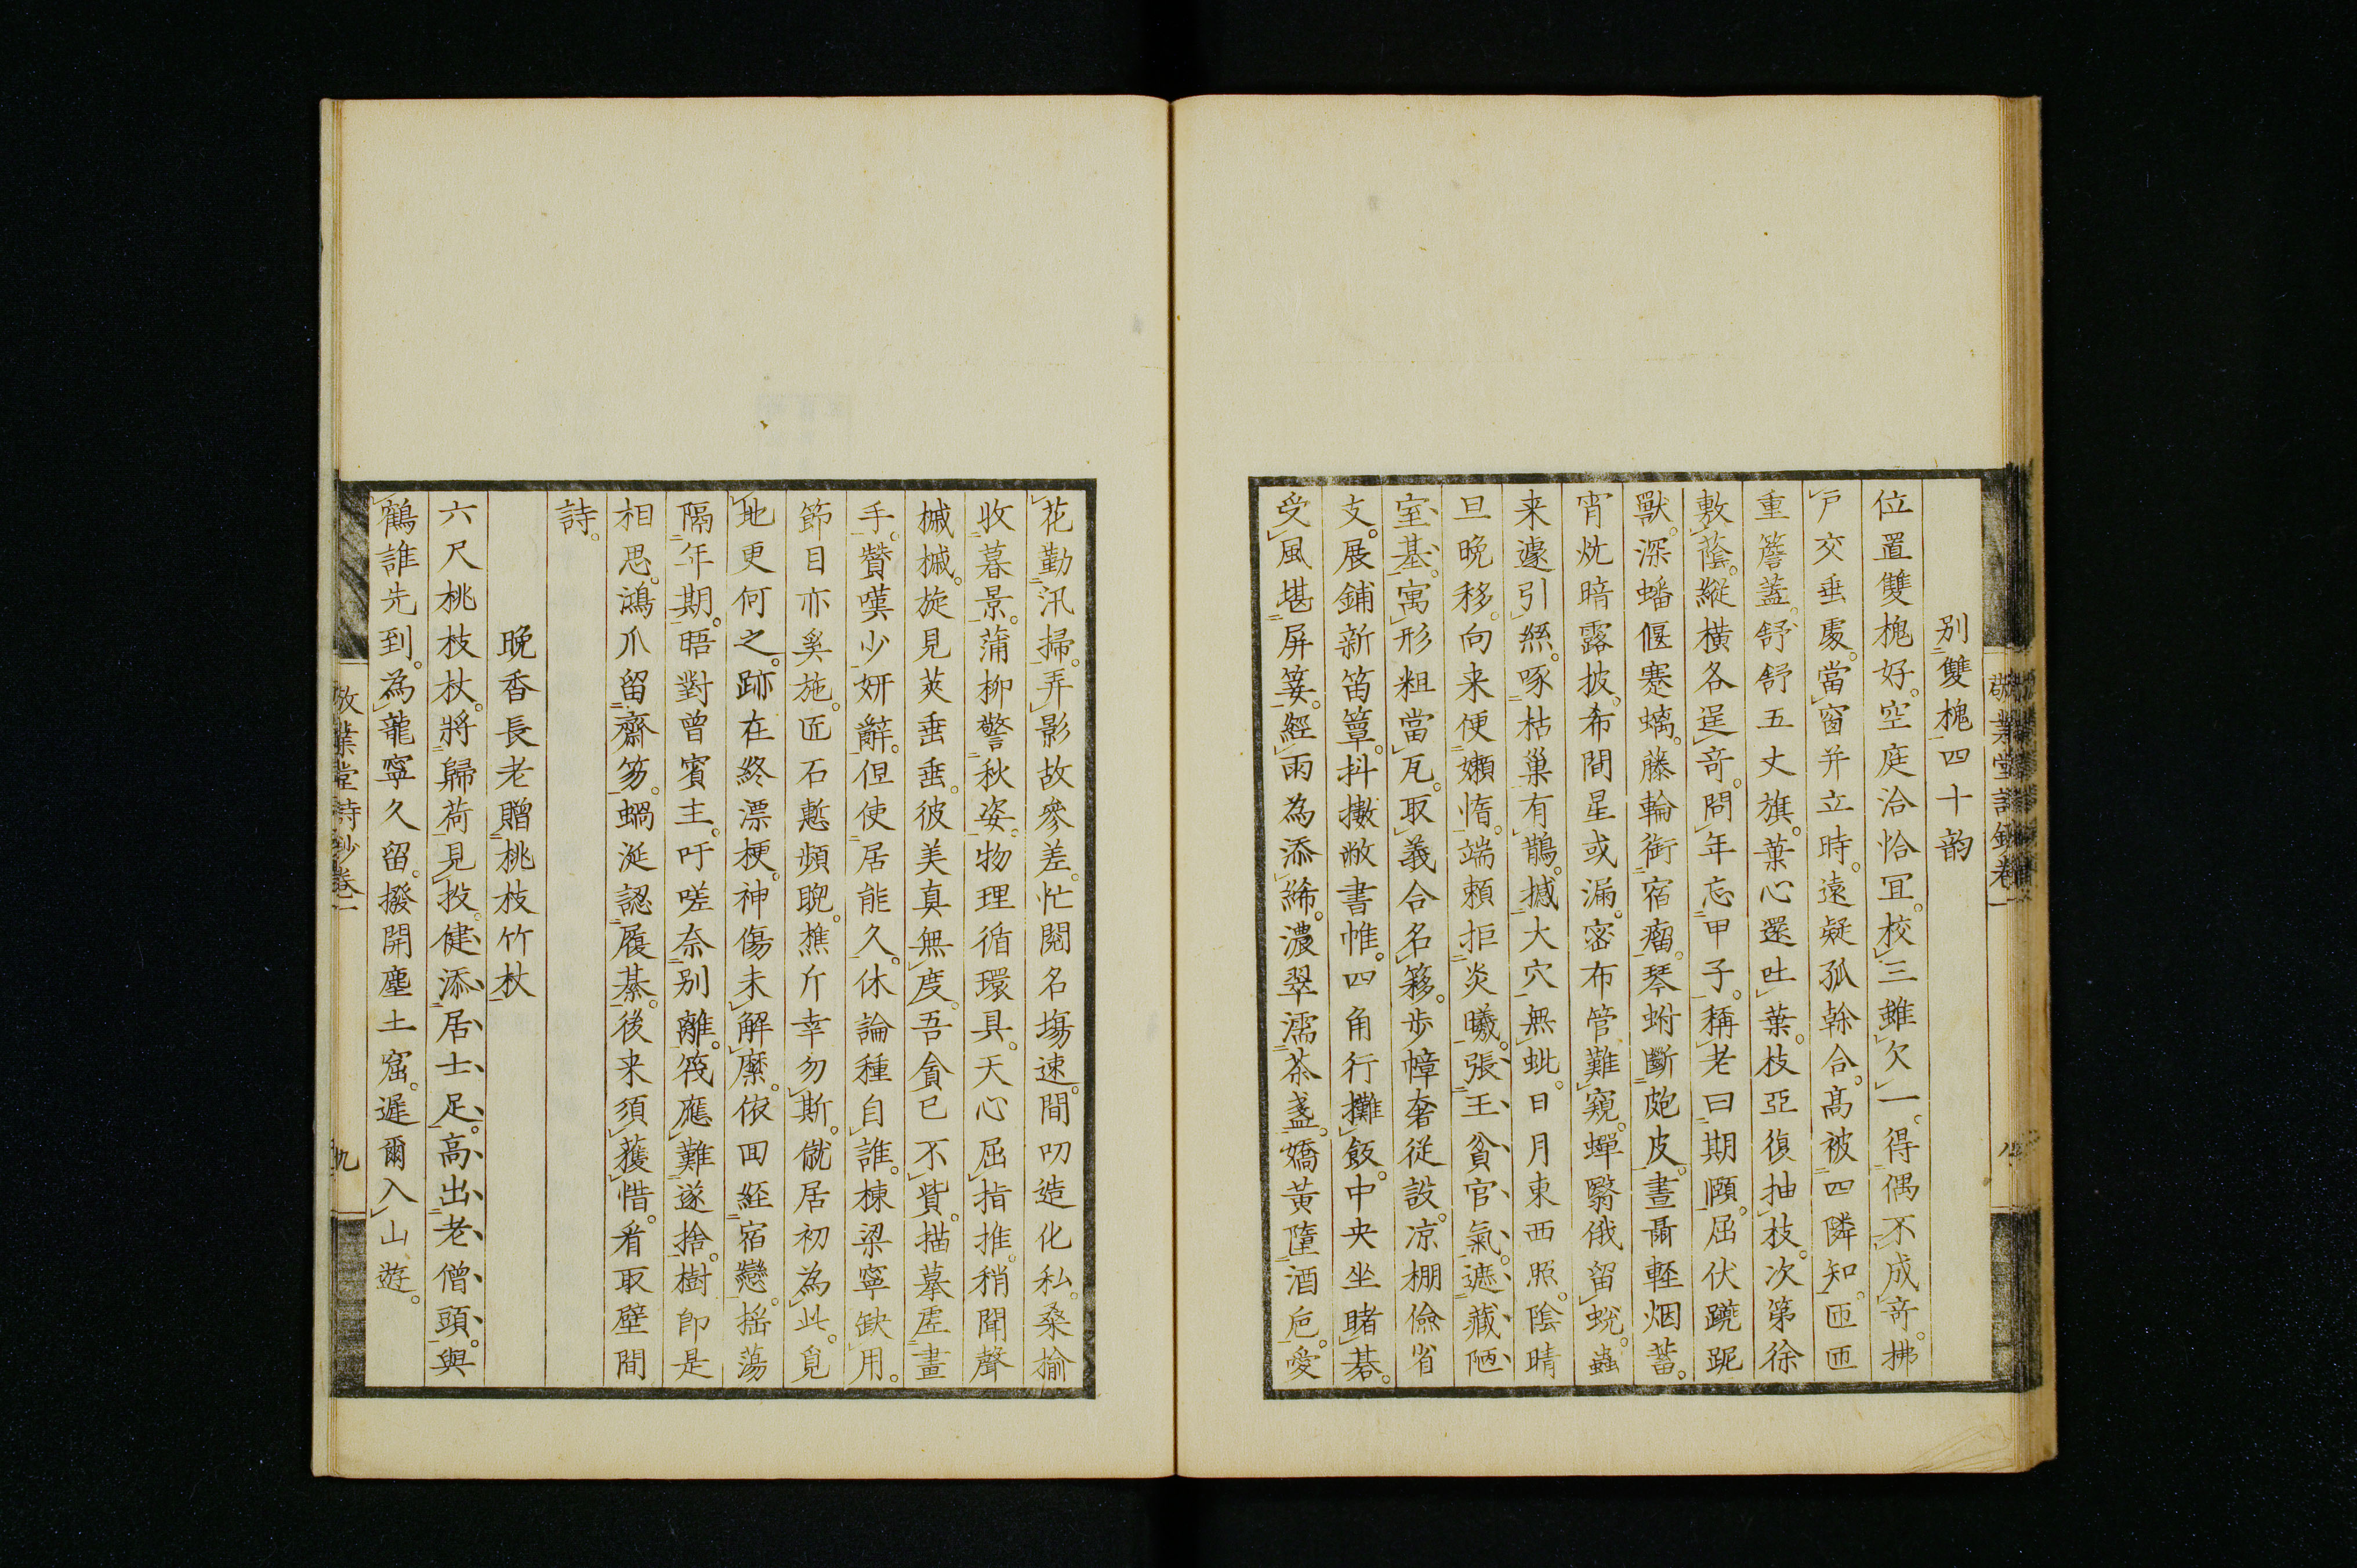 別雙槐四十韵
位置雙槐好。空庭洽恰冝。校三雖欠一。得偶不成竒。拂
戶交垂處。當窗并立時。遠疑孤榦合。髙被四隣知。匝匝
重簷蓋。舒舒五丈旗。葉心還吐葉。枝亞復抽枝。次第徐
敷蔭。縱橫各逞竒。問年忘甲子。稱老曰期頤。屈伏蹺跎
獸。深蟠偃蹇螭。藤輪銜宿瘤。琴蚹斷皰皮。晝聶輕烟蓄。
宵炕暗露披。希間星或漏。密布管難窺。蟬翳俄留蛻。蟲
来遽引絲。啄枯巢有鵲。撼大穴無蚍。日月東西照。陰晴
旦晚移。向来便嬾惰。端頼拒炎曦。張王貧官氣。遮藏陋
室基。寓形粗當瓦。取義合名簃。步幛奢從設。凉棚儉省
支。展鋪新笛簟。抖擻敝書帷。四角行攤飯。中央坐睹棊。
受風堪屏箑。經雨為添絺。濃翠濡茶盞。嬌黃墮酒巵。愛
花勤汛掃。弄影故參差。忙閱名塲速。間叨造化私。桑榆
收暮景。蒲柳警秋姿。物理循環具。天心屈指推。稍聞聲
槭槭。旋見莢垂垂。彼美真無度。吾貪已不貲。描摹虛畫
手。贊嘆少妍辭。但使居能久。休論種自誰。棟梁寧缺用。
節目亦奚施。匠石慙頻睨。樵斤幸勿斯。僦居初為此。覓
地更何之。跡在終漂梗。神傷未解縻。依回經宿戀。搖蕩
隔年期。晤對曾賓主。吁嗟奈别離。筏應難遂捨。樹卽是
相思。鴻爪留齋笏。蝸涎認履綦。後来須護惜。看取壁間
詩。
晩香長老贈桃枝竹杖
六尺桃枝杖。將歸荷見投。健添居士足。高出老僧頭。與
鶴誰先到。為龍寧久留。撥開塵土窟。遲爾入山遊。
敬業堂詩鈔卷二
九